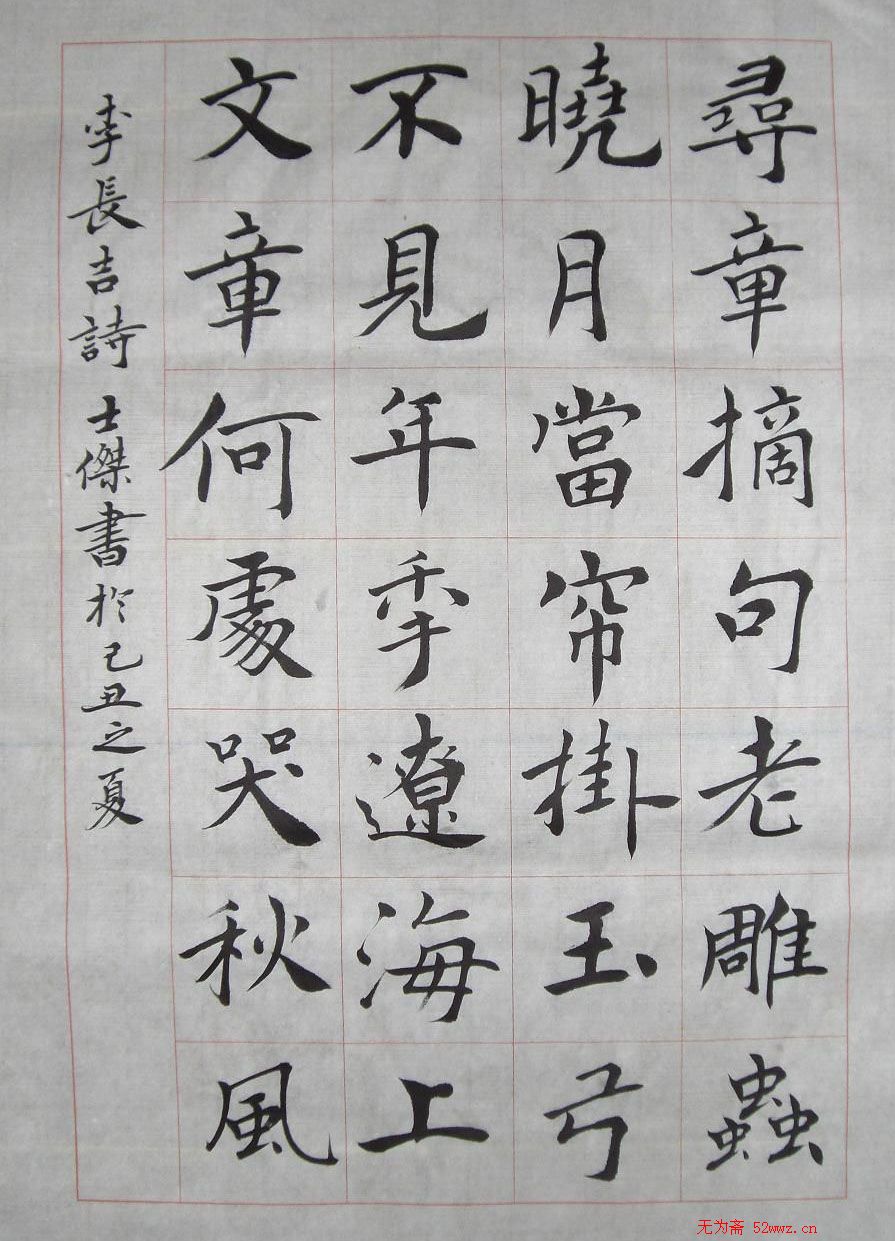 尋章摘句老雕蟲
曉月當帘掛玉弓
不見年秊遼海上
文章何處哭秋風
李長吉詩 士傑書於己丑之夏
无为斋 52wwz.cn